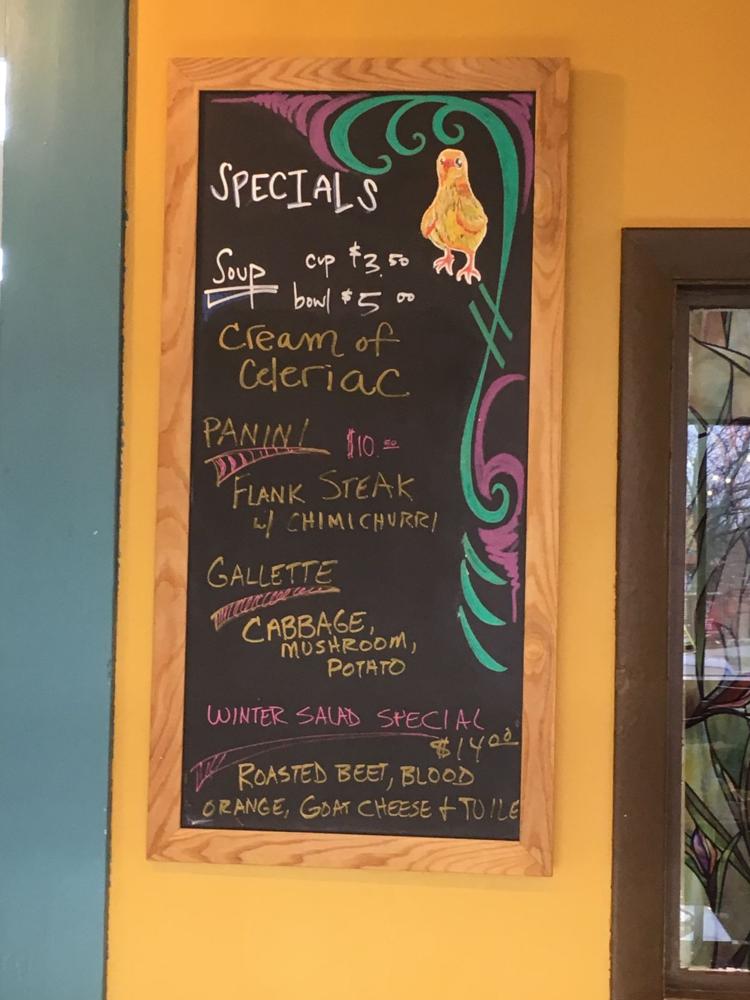 SPECIALS
Soup cup $3.50
bowl $5 00
Cream of
Celeriac
PANINI $10.50
FLANK STEAK
w/ CHIMICHURRI
GALLETTE
CABBAGE,
MUSHROOM,
POTATO
WINTER SALAD SPECIAL
$14 00
ROASTED BEET, BLOOD
ORANGE, GOAT CHEESE + TUILE